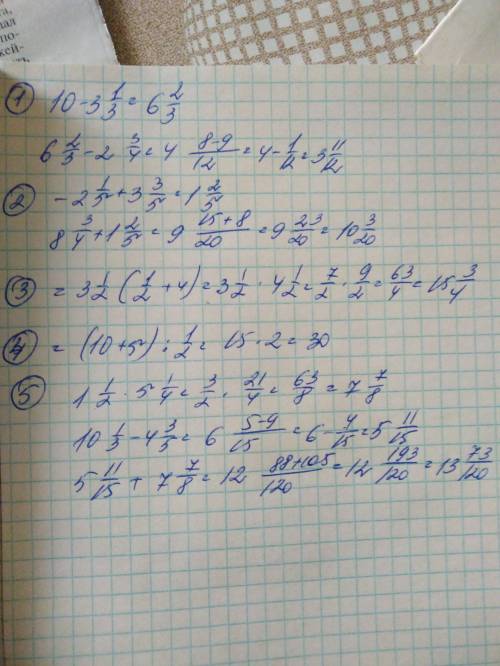 та,
вая
по-
кей-
ть
① 10 - 3 1/3 = 6 2/3
6 2/3 - 2 3/4 = 4 (8-9)/12 = 4 - 1/12 = 3 11/12
② - 2 1/5 + 3 3/5 = 1 2/5
8 3/4 + 1 2/5 = 9 (15+8)/20 = 9 23/20 = 10 3/20
③ = 3 1/2 (1/2 + 4) = 3 1/2 · 4 1/2 = 7/2 · 9/2 = 63/4 = 15 3/4
④ = (10+5) : 1/2 = 15 · 2 = 30
⑤ 1 1/2 · 5 1/4 = 3/2 · 21/4 = 63/8 = 7 7/8
10 1/3 - 4 3/5 = 6 (5-9)/15 = 6 - 4/15 = 5 11/15
5 11/15 + 7 7/8 = 12 (88+105)/120 = 12 193/120 = 13 73/120